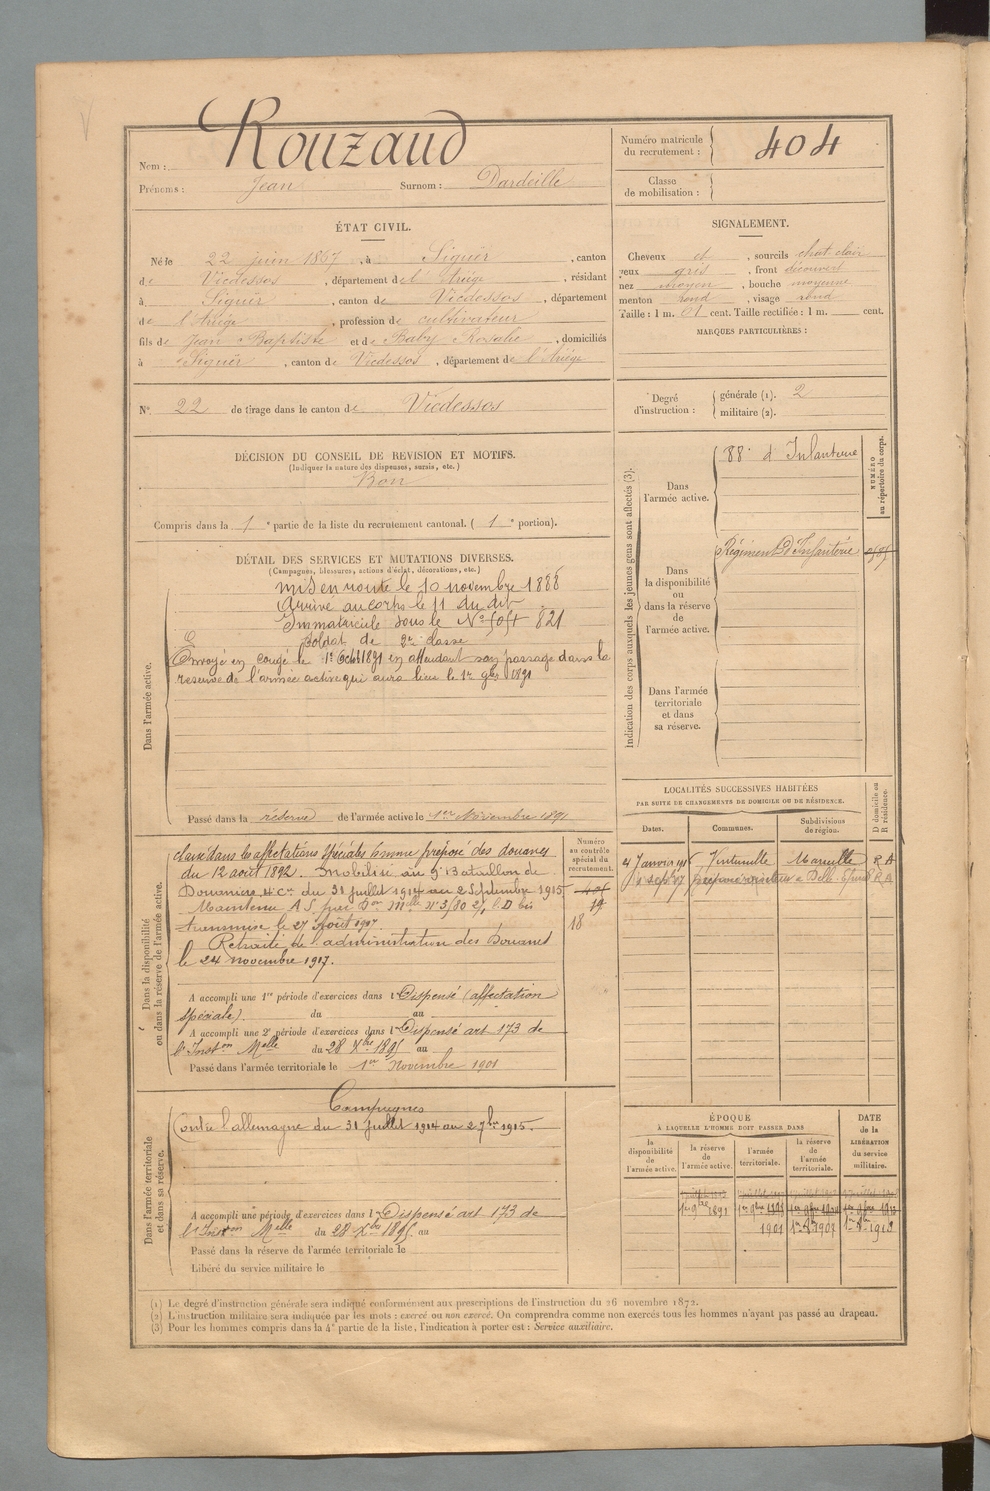 Nom : Rouzaud
Prénoms : Jean Surnom : Dardeille
Numéro matricule du recrutement : 404
Classe de mobilisation :
ÉTAT CIVIL.
Né le 22 juin 1867, à Siguer, canton
de Vicdessos, département de l'Ariège, résidant
à Siguer, canton de Vicdessos, département
de l'Ariège, profession de cultivateur
fils de Jean Baptiste et de Baby Rosalie, domiciliés
à Siguer, canton de Vicdessos, département de l'Ariège
N° 22 de tirage dans le canton de Vicdessos
SIGNALEMENT.
Cheveux et, sourcils chat. clair
yeux gris, front découvert
nez moyen, bouche moyenne
menton rond, visage rond
Taille : 1 m. 61 cent. Taille rectifiée : 1 m. cent.
MARQUES PARTICULIÈRES :
Degré d'instruction : générale (1). 2
militaire (2).
DÉCISION DU CONSEIL DE REVISION ET MOTIFS.
(Indiquer la nature des dispenses, sursis, etc.)
Bon
Compris dans la 1e partie de la liste du recrutement cantonal. (1e portion).
DÉTAIL DES SERVICES ET MUTATIONS DIVERSES.
(Campagnes, blessures, actions d'éclat, décorations, etc.)
Dans l'armée active.
Mis en route le 10 novembre 1888
Arrivé au corps le 11 du dit
Immatriculé sous le N° 821
Soldat de 2e classe
Envoyé en congé le 1er Octb 1891 en attendant son passage dans la
réserve de l'armée active qui aura lieu le 1er 9bre 1891
Passé dans la réserve de l'armée active le 1er Novembre 1891
Indication des corps auxquels les jeunes gens sont affectés (3).
NUMÉRO au répertoire du corps.
Dans l'armée active.
88e d'Infanterie
Dans la disponibilité ou dans la réserve de l'armée active.
Régiment d'Infanterie
Dans l'armée territoriale et dans sa réserve.
LOCALITÉS SUCCESSIVES HABITÉES
PAR SUITE DE CHANGEMENTS DE DOMICILE OU DE RÉSIDENCE.
Dates. Communes. Subdivisions de région. D domicile ou R résidence.
Janvier Marseille R A
R A
Dans la disponibilité ou dans la réserve de l'armée active.
Numéro au contrôle spécial du recrutement.
Classé dans les affectations spéciales comme préposé des douanes
du 12 août 1892. Mobilisé au 9e Bataillon de
Douaniers 4e Cie du 31 juillet 1914 au 2 Septembre 1915
Maintenu A S par
transmise le 27 Août 1917.
18
Retraité de l'administration des Douanes
le 24 novembre 1917.
A accompli une 1re période d'exercices dans l Dispensé (affectation
spéciale). du au
A accompli une 2e période d'exercices dans l Dispensé art 173 de
l'Inston Melle du 28 Xbre 1895 au
Passé dans l'armée territoriale le 1er Novembre 1901
Dans l'armée territoriale et dans sa réserve.
Campagnes
Contre l'allemagne du 31 juillet 1914 au 2 7bre 1915.
A accompli une période d'exercices dans l Dispensé art 173 de
l'Inston Melle du 28 Xbre 1895 au
Passé dans la réserve de l'armée territoriale le
Libéré du service militaire le
ÉPOQUE
À LAQUELLE L'HOMME DOIT PASSER DANS
DATE de la LIBÉRATION du service militaire.
la disponibilité de l'armée active. la réserve de l'armée active. l'armée territoriale. la réserve de l'armée territoriale.
1er 9bre 1891
1901
(1) Le degré d'instruction générale sera indiqué conformément aux prescriptions de l'instruction du 26 novembre 1872.
(2) L'instruction militaire sera indiquée par les mots : exercé ou non exercé. On comprendra comme non exercés tous les hommes n'ayant pas passé au drapeau.
(3) Pour les hommes compris dans la 4e partie de la liste, l'indication à porter est : Service auxiliaire.